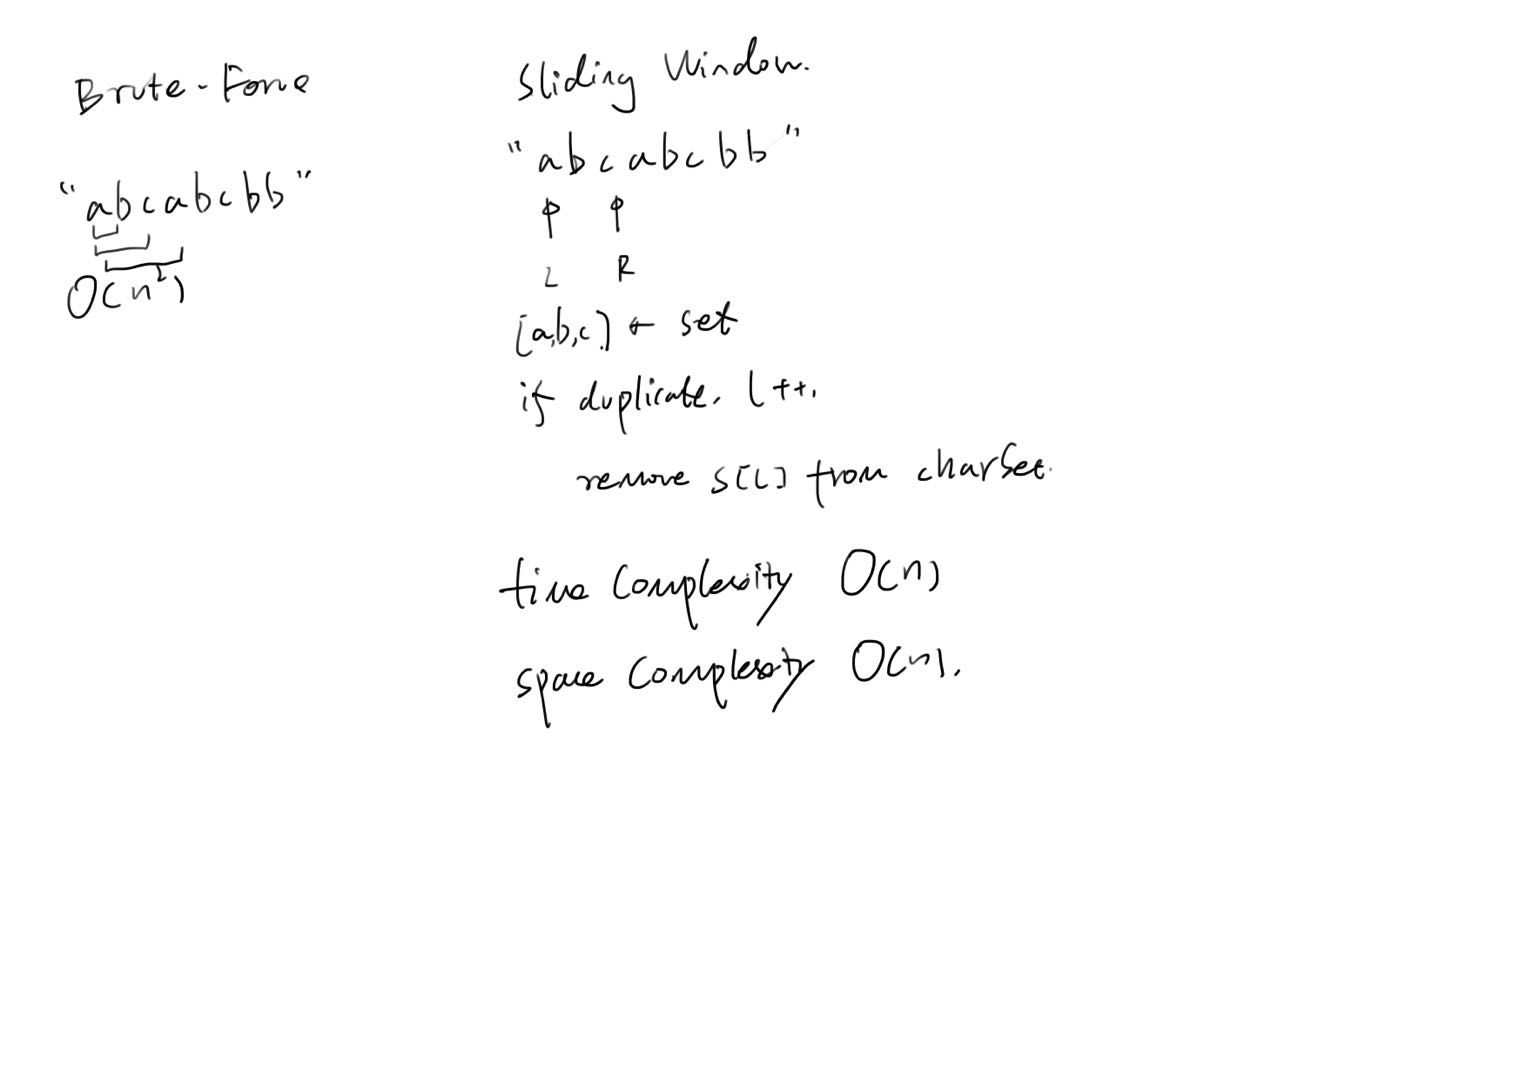 Brute-Force
"abcabcbb"
O(n²)
Sliding Window.
"abcabcbb"
L R
[a,b,c] ← set
if duplicate, L++.
remove s[L] from charSet.
time complexity O(n)
space complexity O(n).